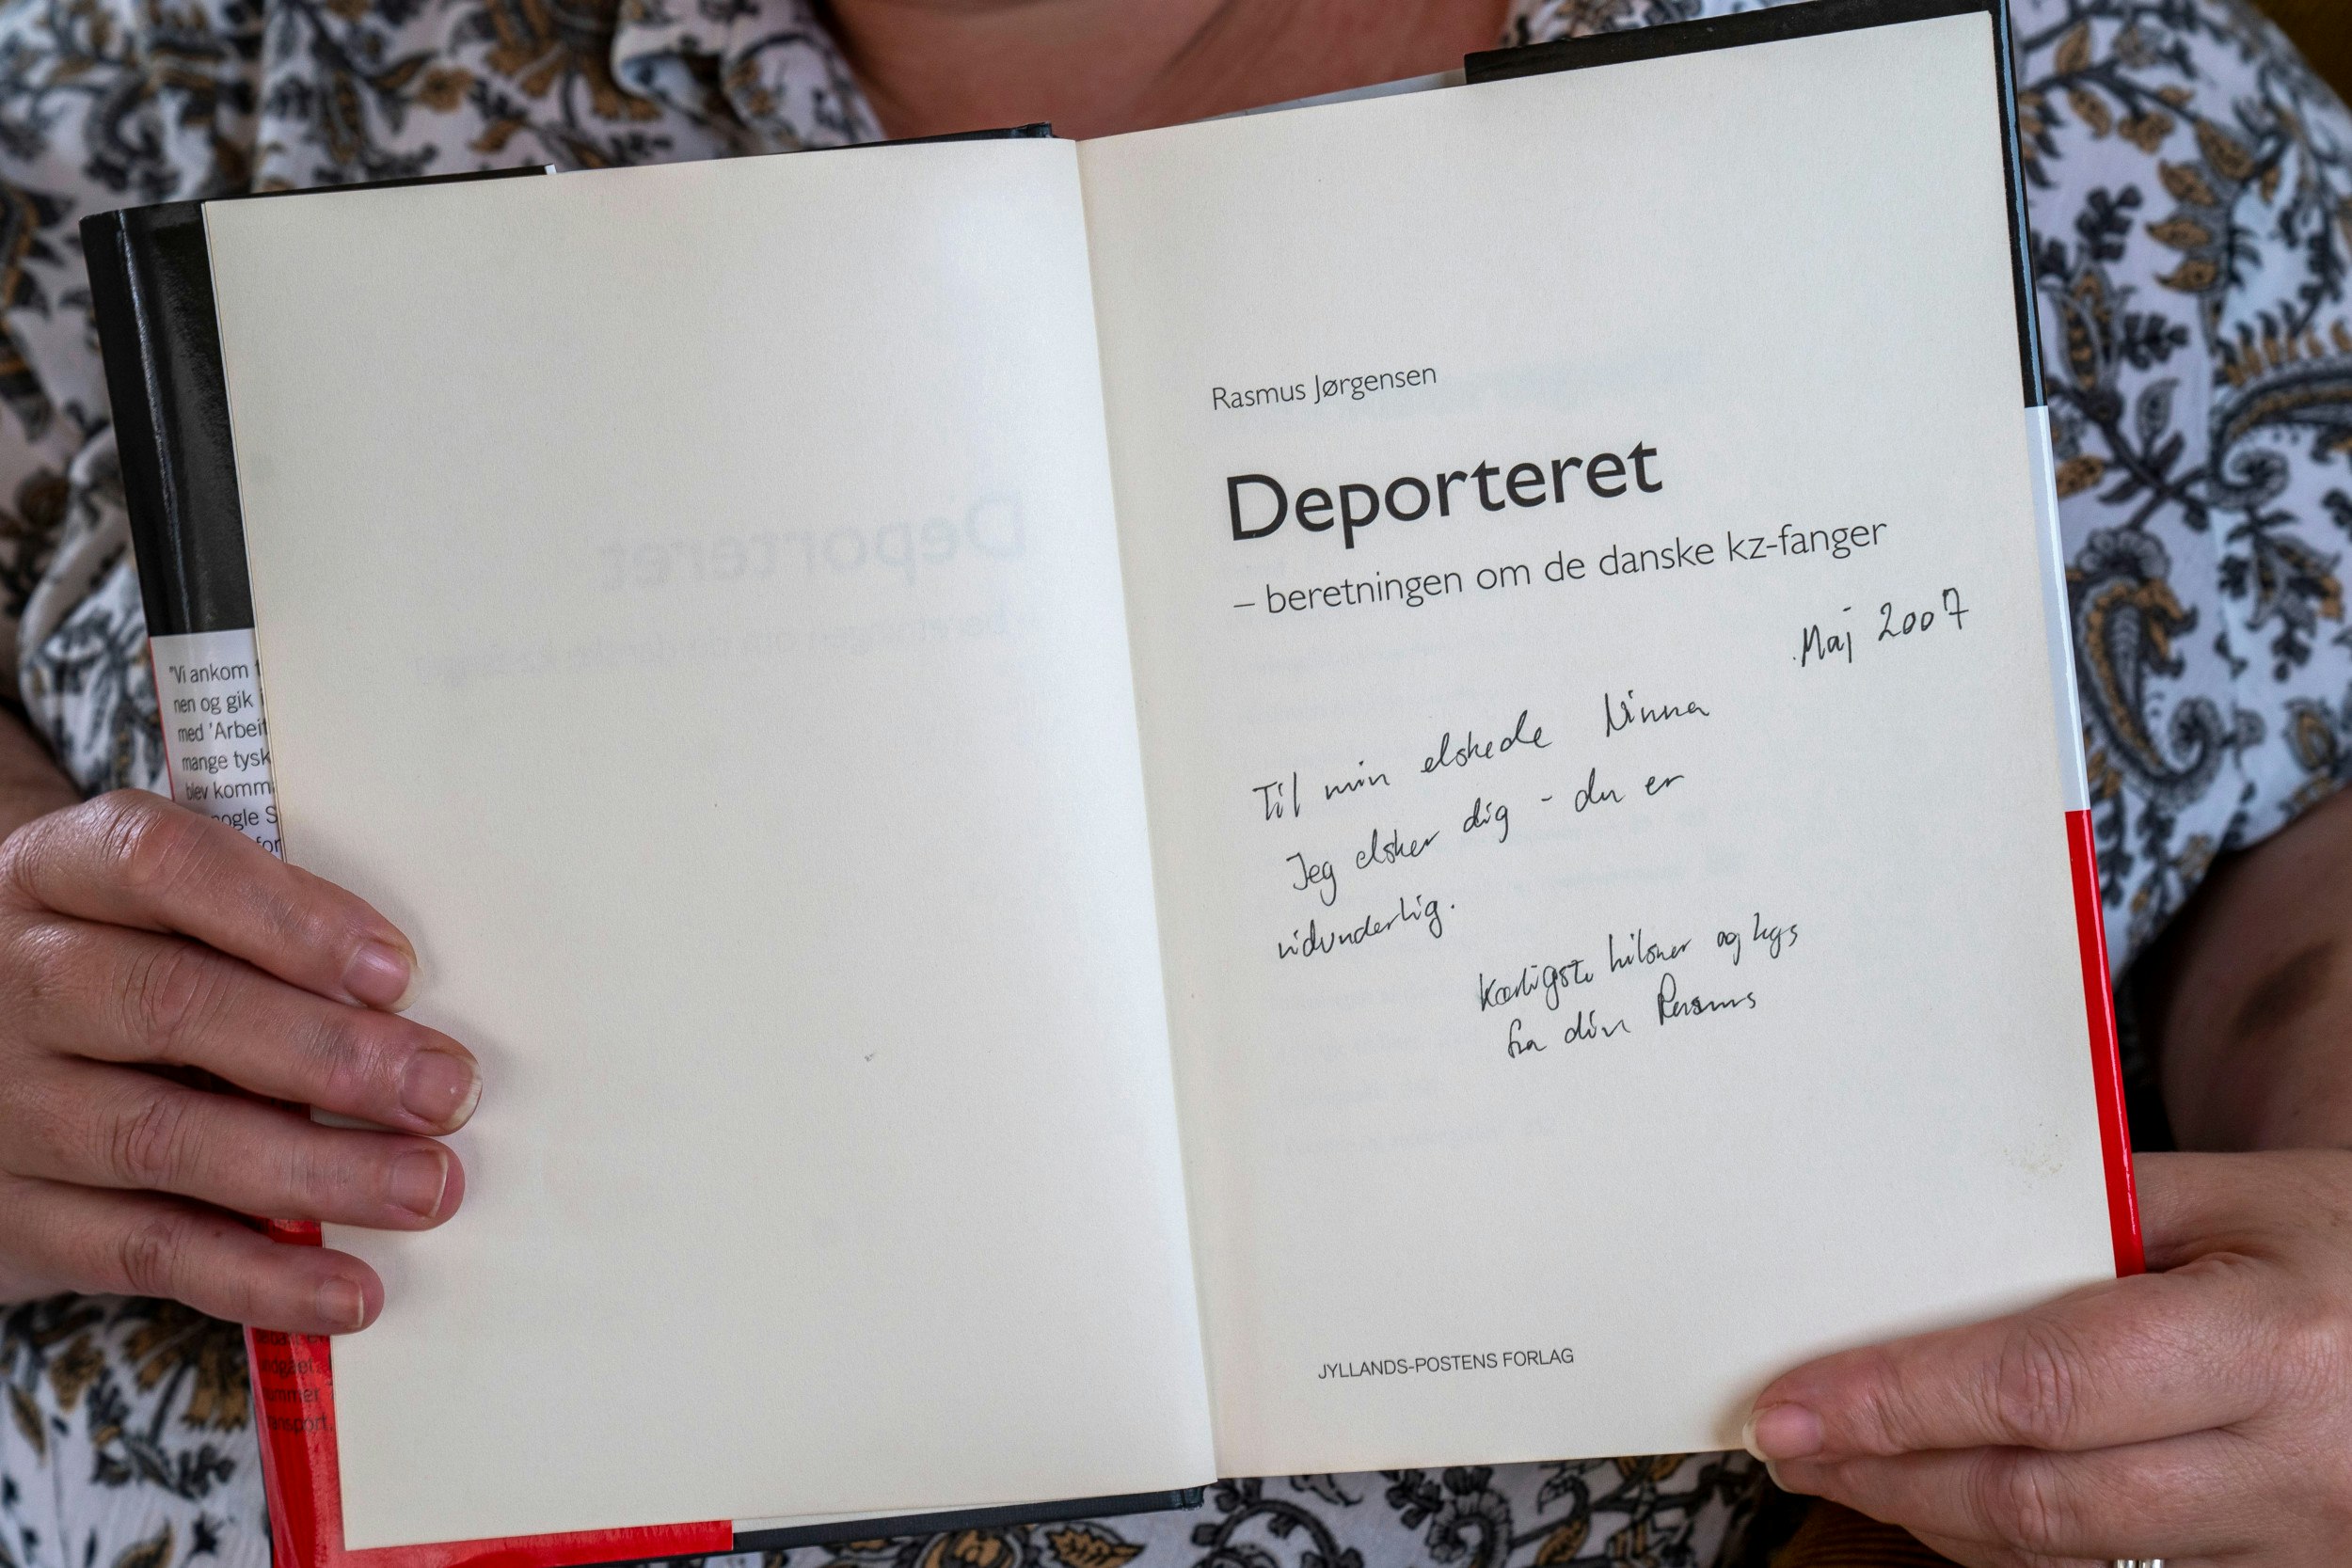 "Vi ankom
nen og gik
med 'Arbeit
mange tysk
blev komm
nogle S
for
Rasmus Jørgensen
Deporteret
– beretningen om de danske kz-fanger
Maj 2007
Til min elskede Ninna
Jeg elsker dig - du er
vidunderlig.
Kærligste hilsner og kys
fra din Rasmus
JYLLANDS-POSTENS FORLAG